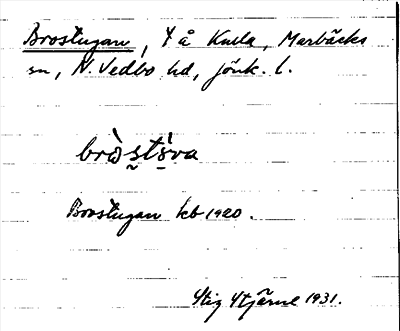 Brostugan, t å Kulla, Marbäcks
sn, N. Vedbo hd, jönk. l.
bròstṡva
Brostugan kb 1920.
Stig Stjärne 1931.